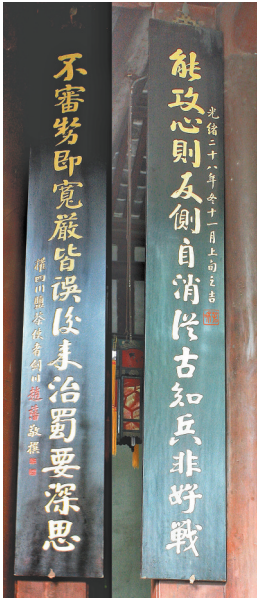 能攻心則反側自消從古知兵非好戰
光緒二十八年冬十一月上旬之吉
不審勢即寬嚴皆誤後來治蜀要深思
權四川鹽茶使者劍川趙藩敬撰